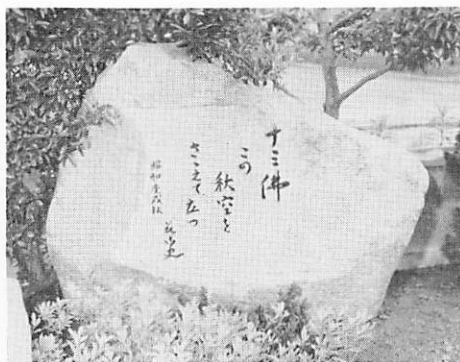 十三佛
この
秋空を
さゝえて立つ
昭和庚戌秋